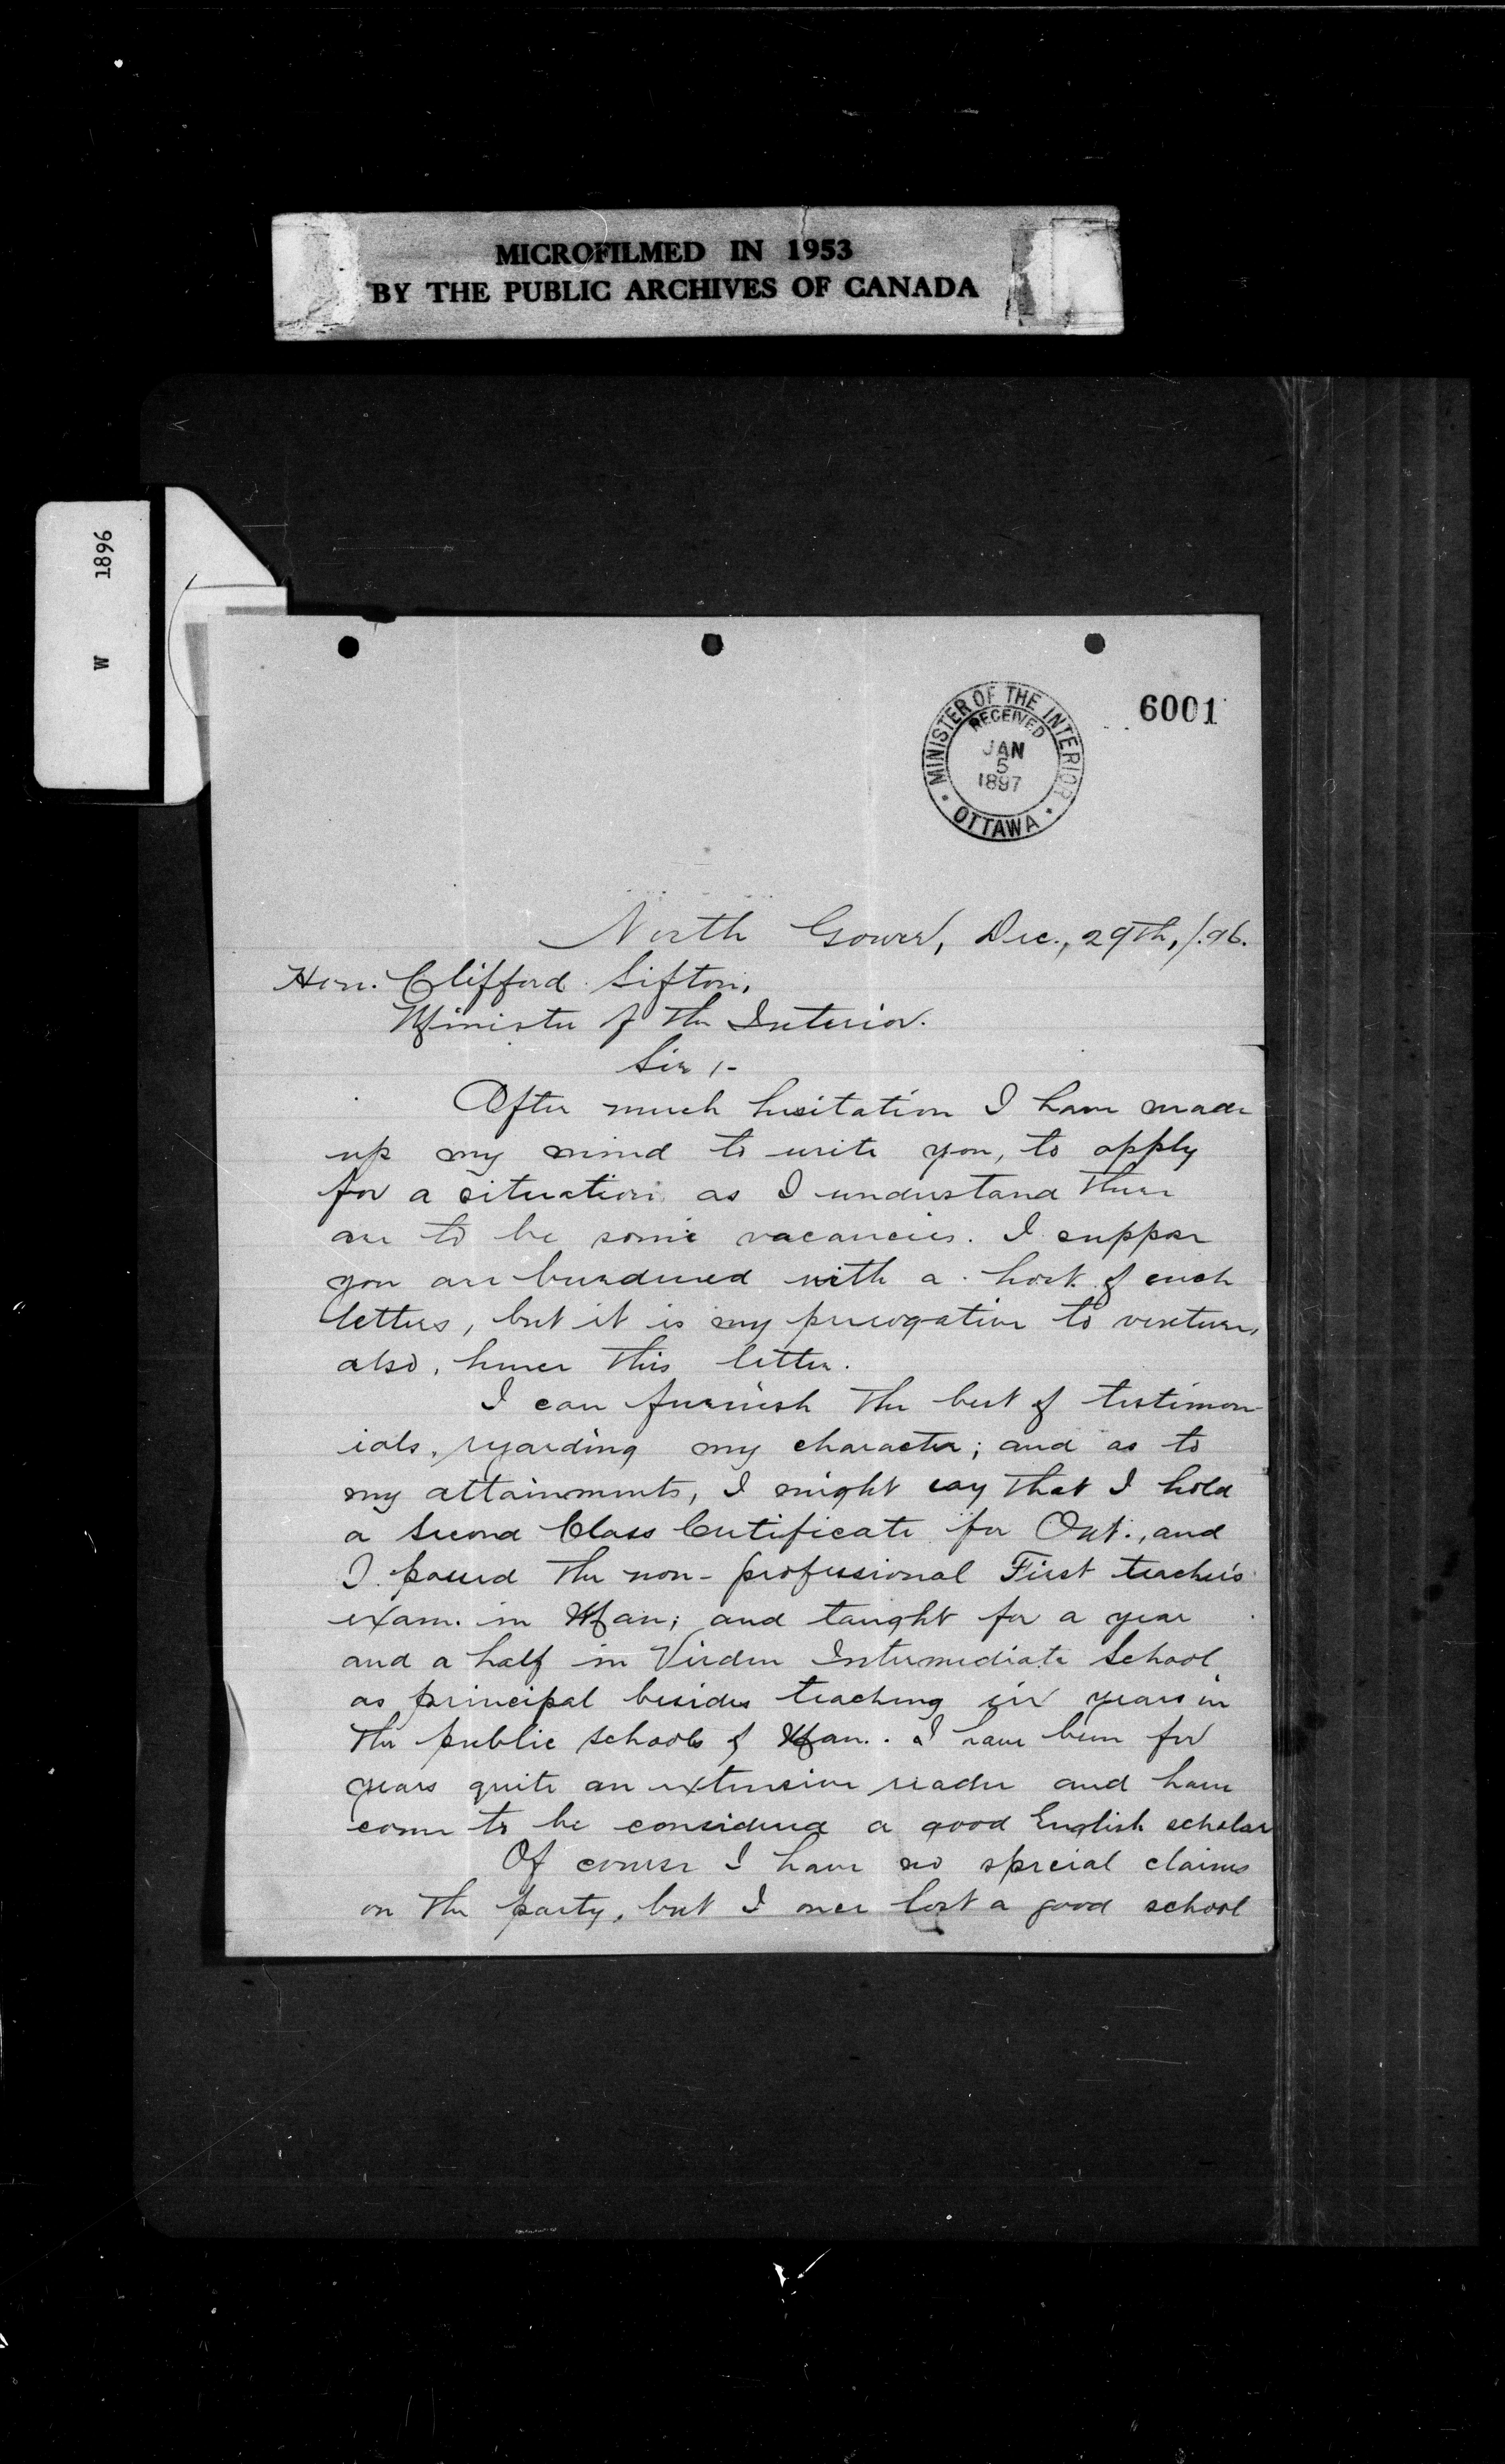 MICROFILMED IN 1953
BY THE PUBLIC ARCHIVES OF CANADA
W 1896
6001
MINISTER OF THE INTERIOR
RECEIVED
JAN
5
1897
OTTAWA
North Gower, Dec., 29th, /.96.
Hon. Clifford Sifton,
Minister of the Interior.
Sir ;-
After much hesitation I have made
up my mind to write you, to apply
for a situation as I understand there
are to be some vacancies. I suppose
you are burdened with a host of such
letters, but it is my prerogative to venture,
also, hence this letter.
I can furnish the best of testimon-
ials, regarding my character; and as to
my attainments, I might say that I hold
a Second Class Certificate for Ont., and
I passed the non-professional First teacher's
exam. in Man; and taught for a year
and a half in Virden Intermediate School,
as principal besides teaching six years in
the public schools of Man.. I have been for
years quite an extensive reader and have
come to be considered a good English scholar
Of course I have no special claims
on the party, but I once lost a good school